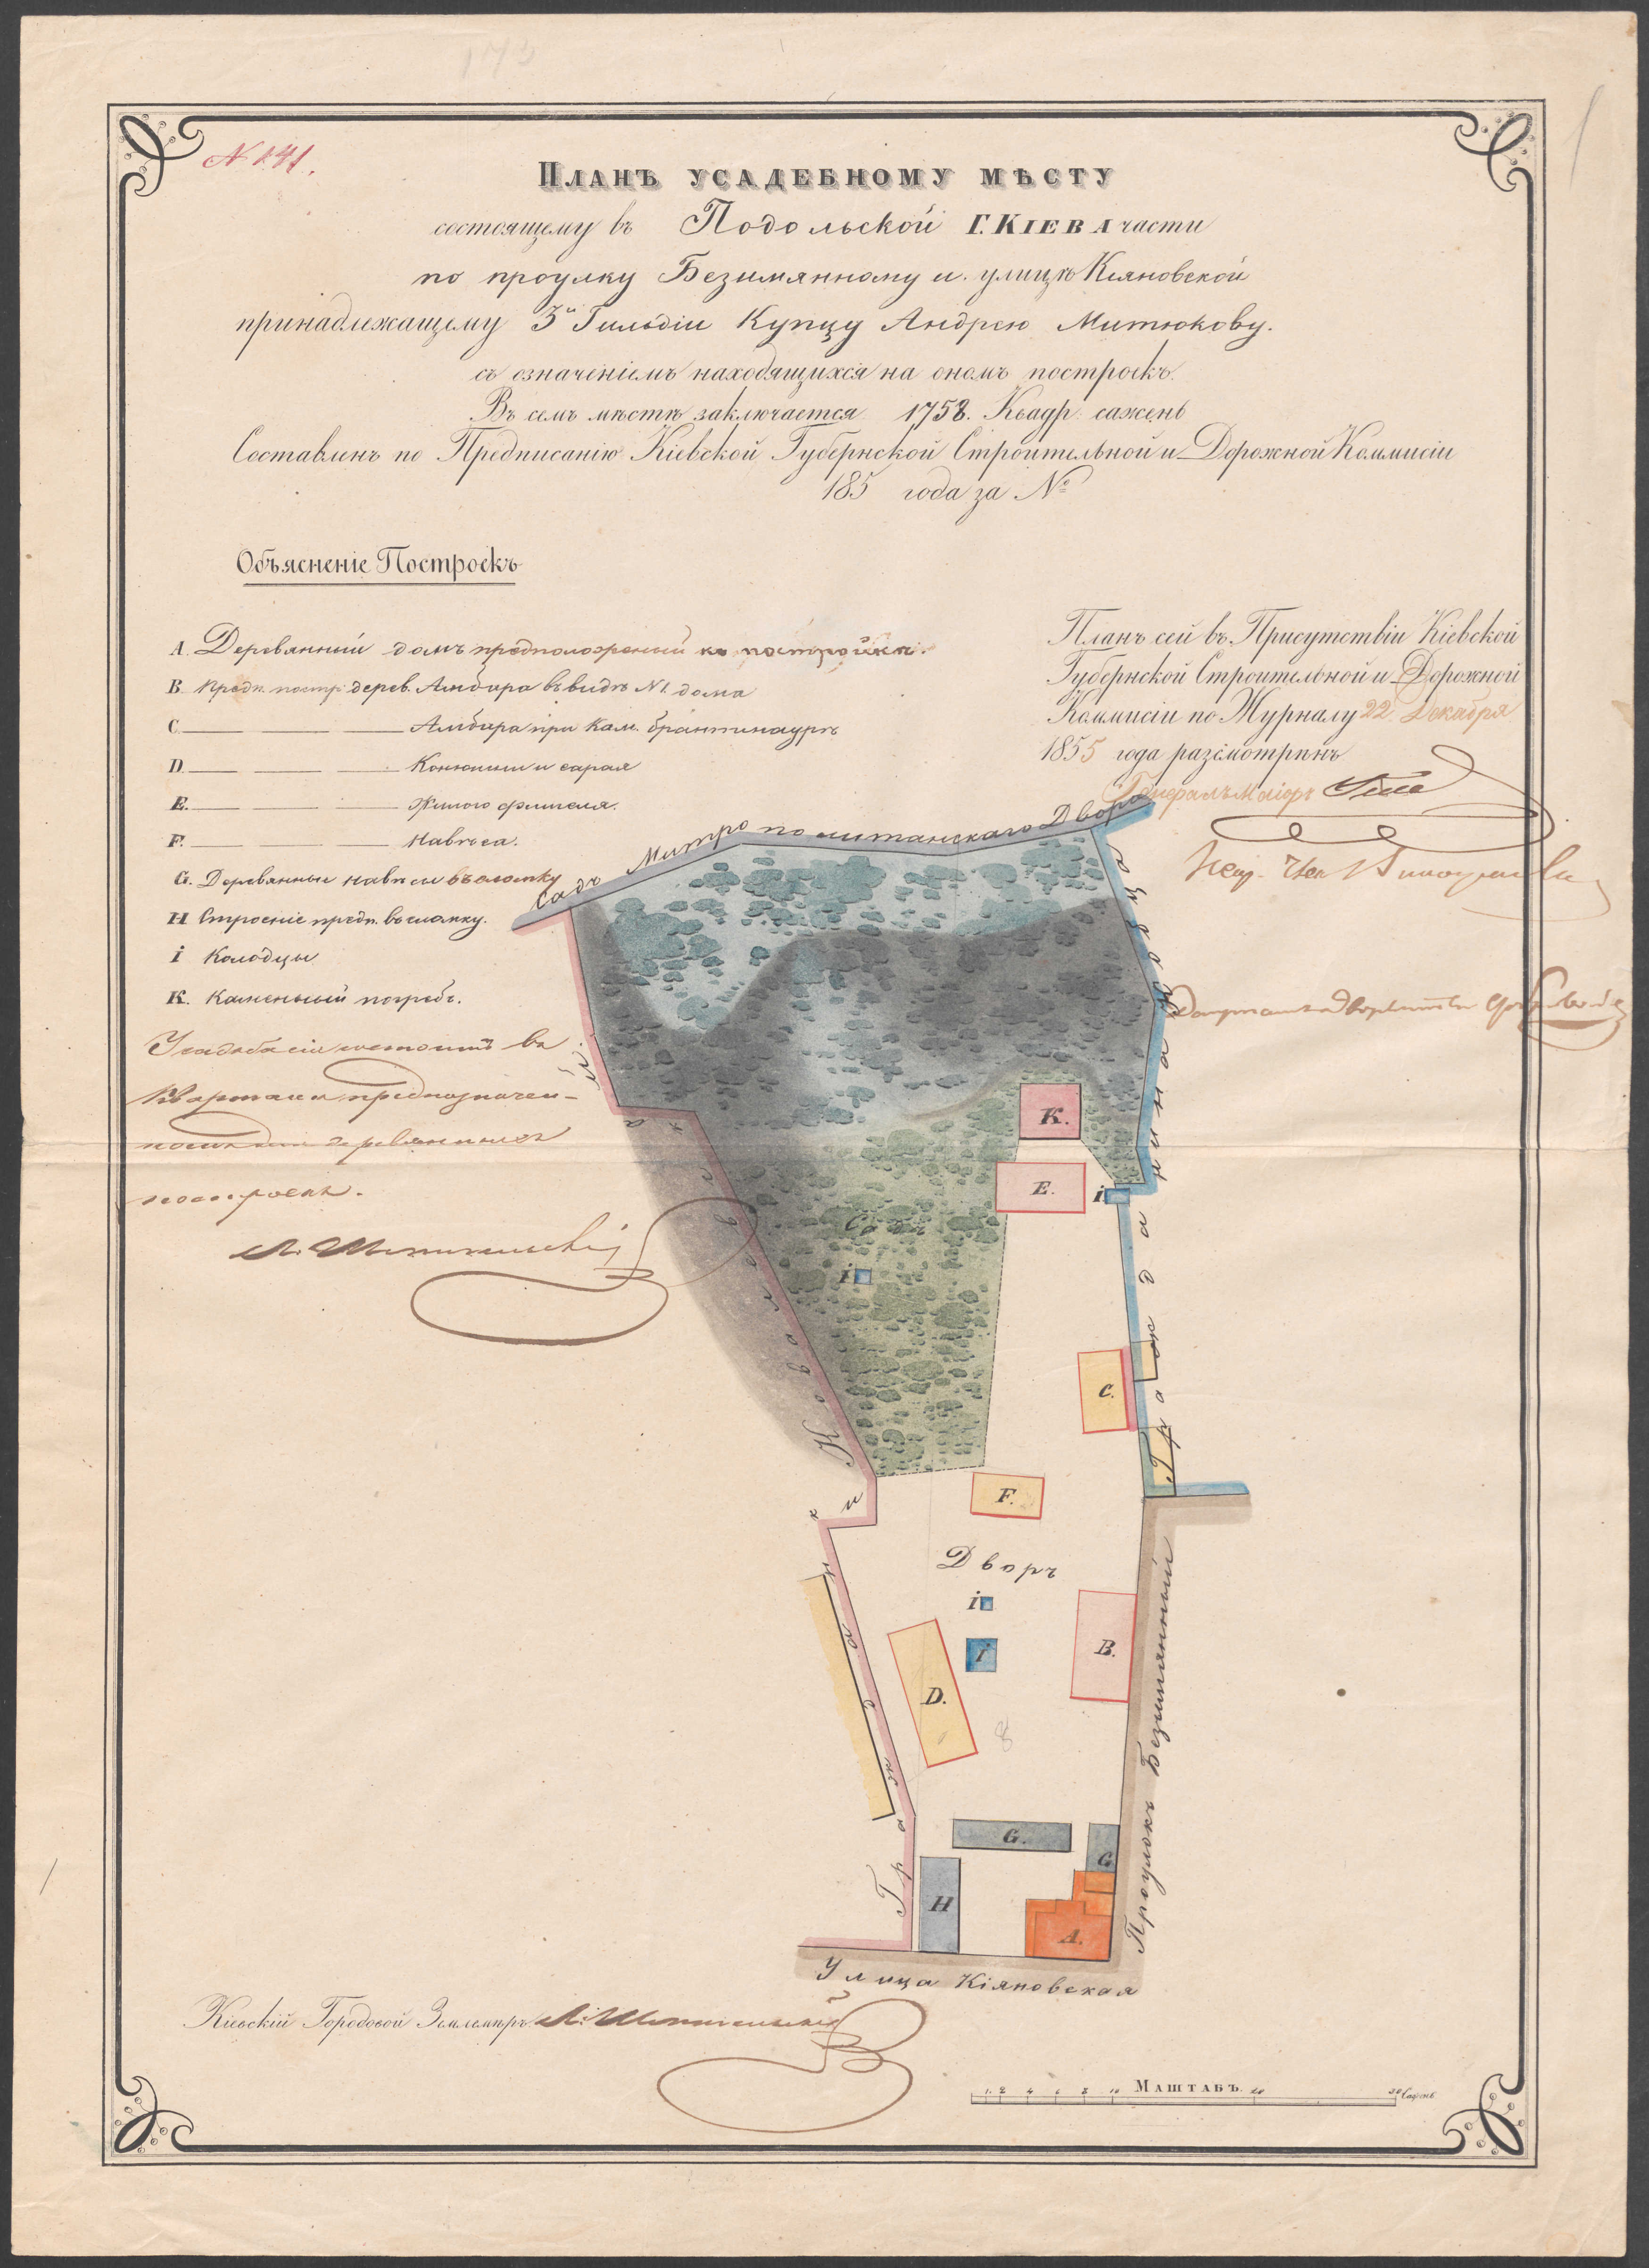 N 141.
Планъ усадебному мѣсту
состоящему въ Подольской Г. Кіева части
по проулку Безимянному и улицѣ Кіяновской
принадлежащему 3й Гильдіи Купцу Андрею Митюкову.
съ означеніемъ находящихся на ономъ построекъ.
Въ семъ мѣстѣ заключается 1758. Квадр: сажень
Составленъ по Предписанію Кіевской Губернской Строительной и Дорожной Коммисіи
185 года за №
Объясненіе Построекъ
A. Деревянный домъ предположеный къ постройкѣ.
B. Предп. постр. дерев. Амбара въ видѣ №1. дома
C. Амбара при Кам. брантмаурѣ
D. Конюшни и сарая
E. Жилого флигеля.
F. Навѣса.
G. Деревянные навѣсы въ сломку
H. Строеніе предп. въ сломку.
i Колодцы
K. Каменный погребъ.
Усадьба сія состоитъ въ
Квартале предназначен-
номъ для деревянныхъ
построекъ.
Планъ сей въ Присутствіи Кіевской
Губернской Строительной и Дорожной
Коммисіи по Журналу 22 Декабря
1855 года разсмотрѣнъ
Генералъ маіоръ
Садъ Митрополитанскаго Двора
K.
E.
i
Садъ
i
C.
F.
Дворъ
i
i
B.
D.
8
G.
G
H
A.
Гражданина
Гражданина
Ковалевскій
Проулокъ Безимянный
Улица Кіяновская
Кіевскій Городовой Землемѣръ
Маштабъ.
1 2 4 6 8 10 20 30 Сажень